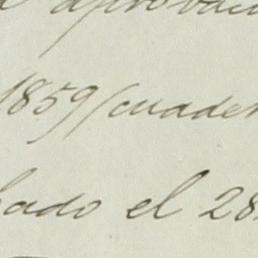 aprobaci
1859 (cuader
bado el 28